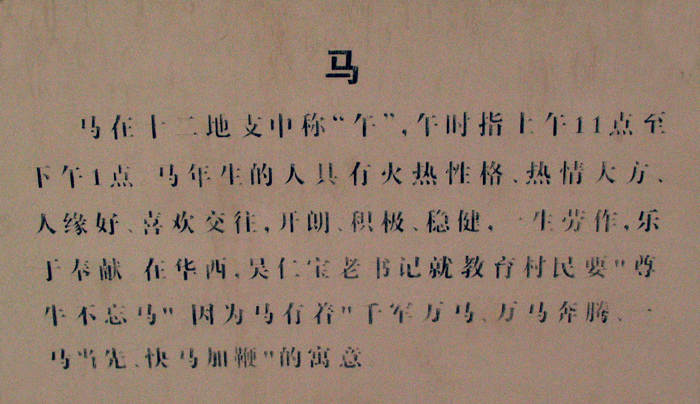 马
马在十二地支中称“午”,午时指上午11点至
下午1点 马年生的人具有火热性格、热情大方、
人缘好、喜欢交往,开朗、积极、稳健,一生劳作,乐
于奉献 在华西,吴仁宝老书记就教育村民要“尊
牛不忘马” 因为马有着“千军万马、万马奔腾、一
马当先、快马加鞭”的寓意